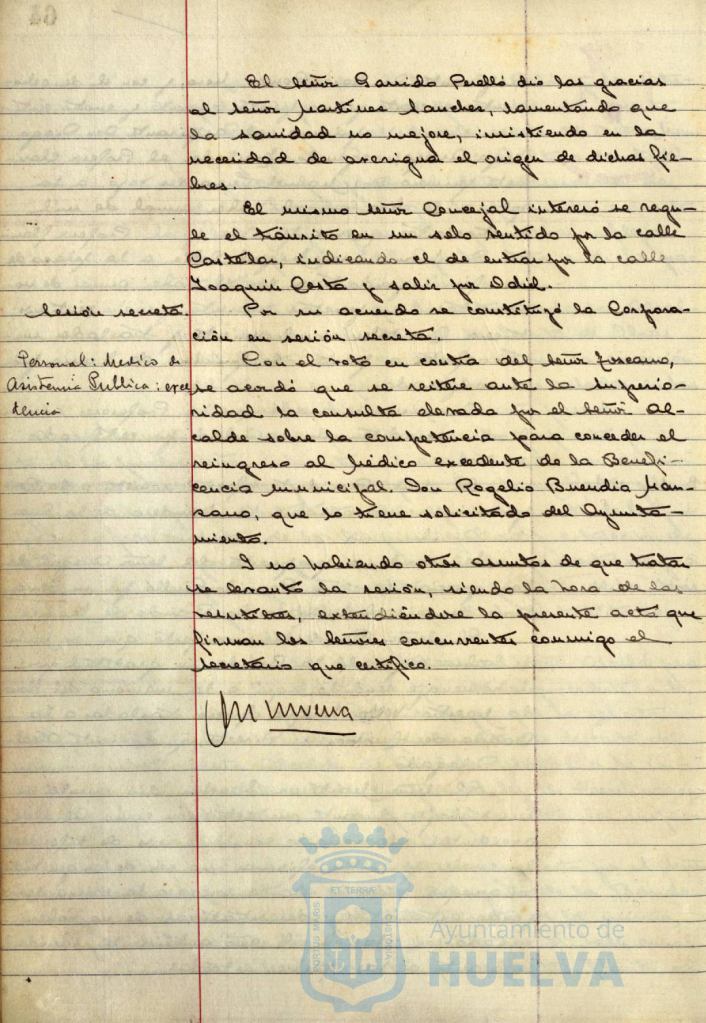 El señor Garrido Perelló dió las gracias
al señor Martínez Sanchez, lamentando que
la sanidad no mejore, insistiendo en la
necesidad de averigua el origen de dichas fie-
bres.
El mismo señor Concejal interesó se regu-
le el tránsito en un solo sentido por la calle
Castelar, indicando el de entrar por la calle
Joaquín Costa y salir por Odiel.
Sesión secreta.
Por su acuerdo se constituyó la Corpora-
ción en sesión secreta.
Personal: Médico de
Asistencia Publica: exce
dencia
Con el voto en contra del señor Toscano,
se acordó que se reitere ante la Superio-
ridad la consulta elevada por el señor Al-
calde sobre la competencia para conceder el
reingreso al Médico excedente de la Benefi-
cencia Municipal. Don Rogelio Buendia Man-
zano, que lo tiene solicitado del Ayunta-
miento.
I no habiendo otros asuntos de que tratar
se levantó la sesión, siendo la hora de las
extendiéndose la presente acta que
firman los Señores concurrentes conmigo el
Secretario que certifico.
PORTUS MARIS
ET TERRÆ
CUSTODIA
Ayuntamiento de
HUELVA